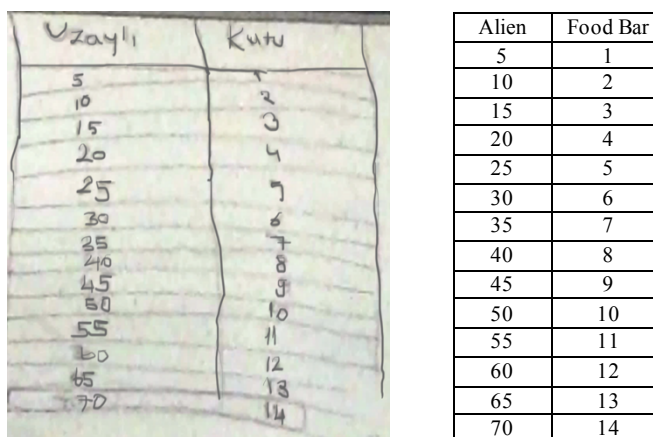 Uzaylı Kutu
5 1
10 2
15 3
20 4
25 5
30 6
35 7
40 8
45 9
50 10
55 11
60 12
65 13
70 14
Alien Food Bar
5 1
10 2
15 3
20 4
25 5
30 6
35 7
40 8
45 9
50 10
55 11
60 12
65 13
70 14